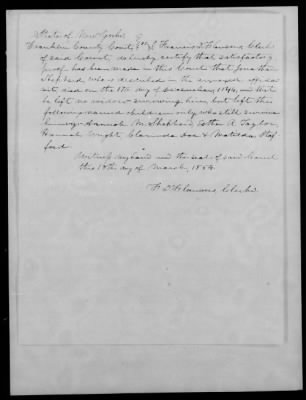 State of New York
Franklin County Court, ss I Francis D Flanders Clerk
of said Court, do hereby certify that satisfactory
proof has been made in this Court that Jonathan
Shepherd who is described in the annexed affida
vit died on the 17th day of December 1844, and that
he left no widow surviving him but left the
following named children only who still survive
him viz Hannah M. Shepherd Esther R. Taylor,
Hannah Wright, Clarinda & Matilda Staf
ford.
Witness my hand and the seal of said Court
this 18th day of March 1854.
F. D Flanders Clerk.